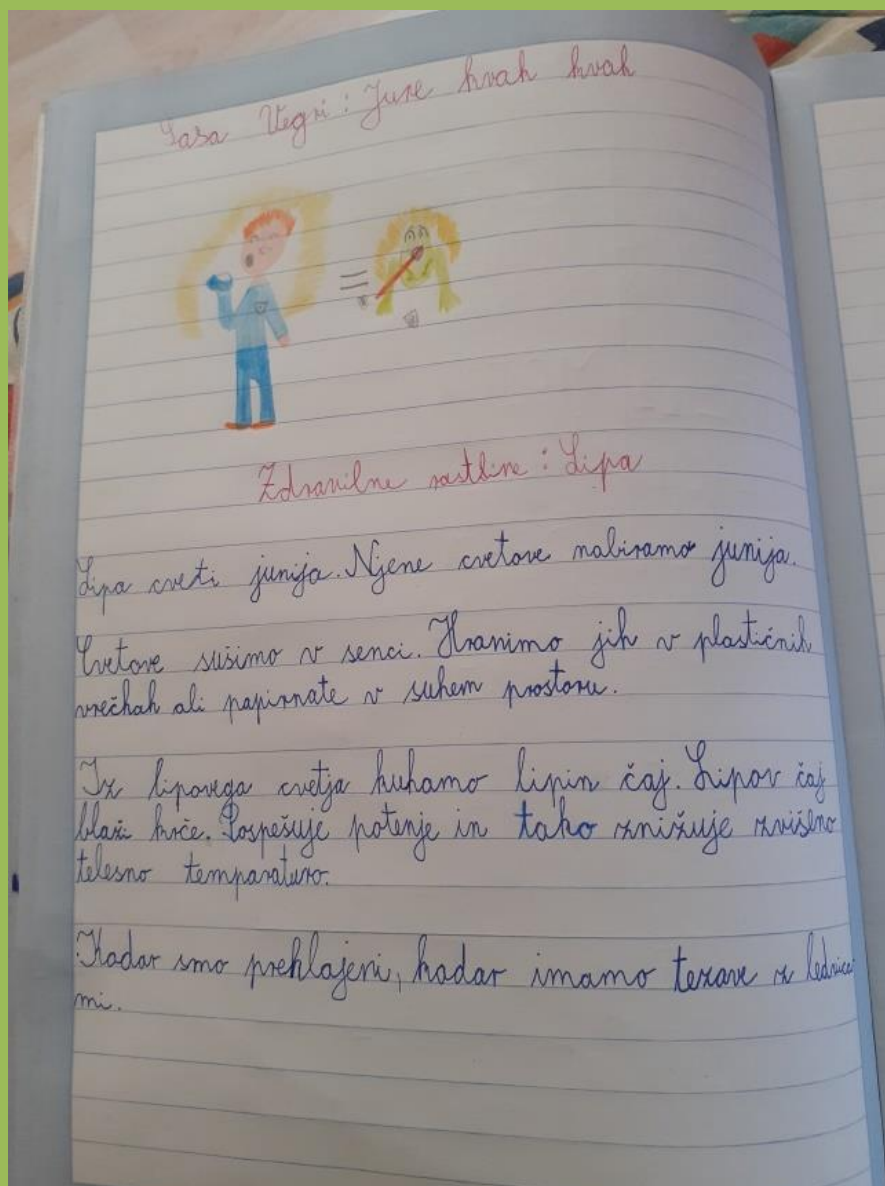 Sasa Vegri: Jure kvak kvak
Zdravilne rastline: Lipa
Lipa cveti junija. Njene cvetove nabiramo junija.
Cvetove sušimo v senci. Hranimo jih v plastičnih
vrečkah ali papirnate v suhem prostoru.
Iz lipovega cvetja kuhamo lipin čaj. Lipov čaj
blaži krče. Pospešuje potenje in tako znižuje zvišno
telesno temparaturo.
Kadar smo prehlajeni, kadar imamo tezave z ledvica
mi.